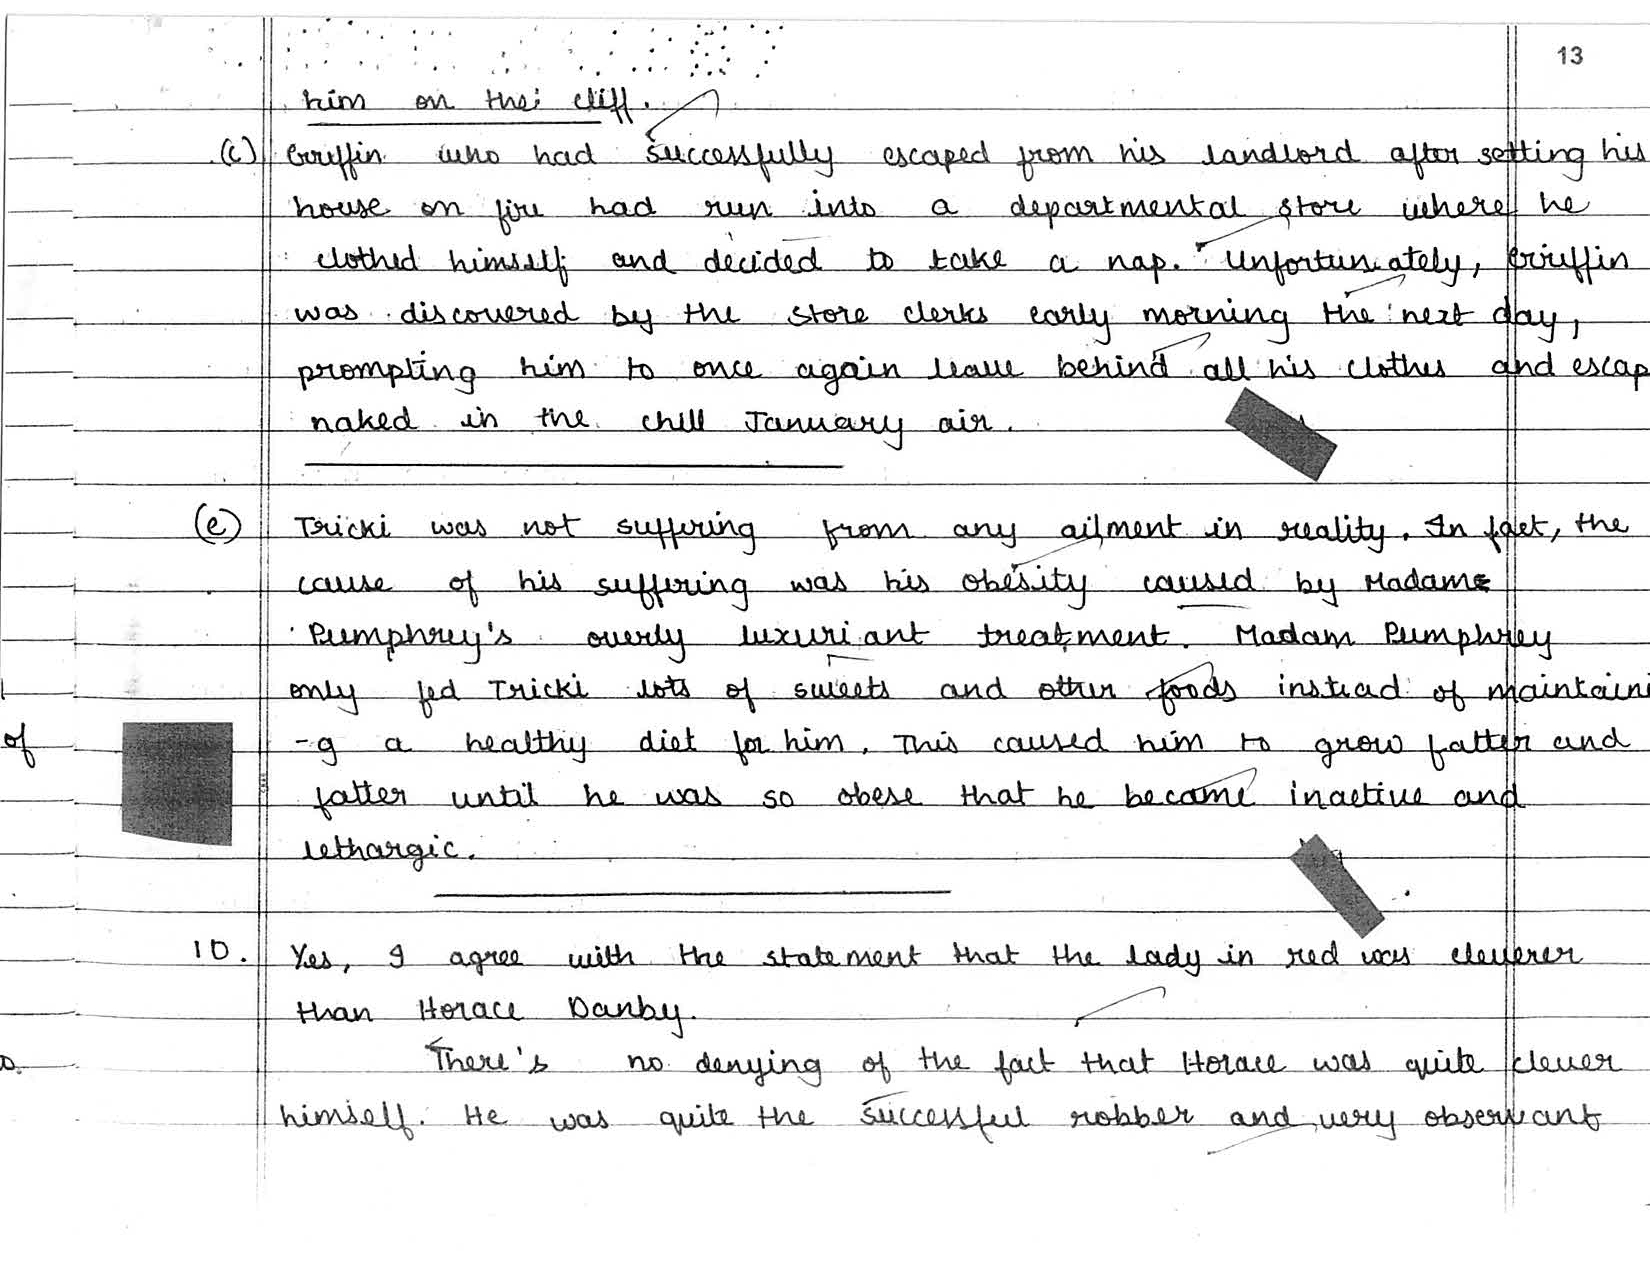 13
him on the cliff.
(c) Griffin who had successfully escaped from his landlord after setting his
house on fire had run into a departmental store where he
clothed himself and decided to take a nap. Unfortunately, Griffin
was discovered by the store clerks early morning the next day,
prompting him to once again leave behind all his clothes and escap
naked in the chill January air.
(e) Tricki was not suffering from any ailment in reality. In fact, the
cause of his suffering was his obesity caused by Madame
Pumphrey's overly luxuriant treatment. Madam Pumphrey
only fed Tricki lots of sweets and other foods instead of maintaini
of -g a healthy diet for him. This caused him to grow fatter and
fatter until he was so obese that he became inactive and
lethargic.
10. Yes, I agree with the statement that the lady in red was cleverer
than Horace Danby.
There's no denying of the fact that Horace was quite clever
himself. He was quite the successful robber and very observant